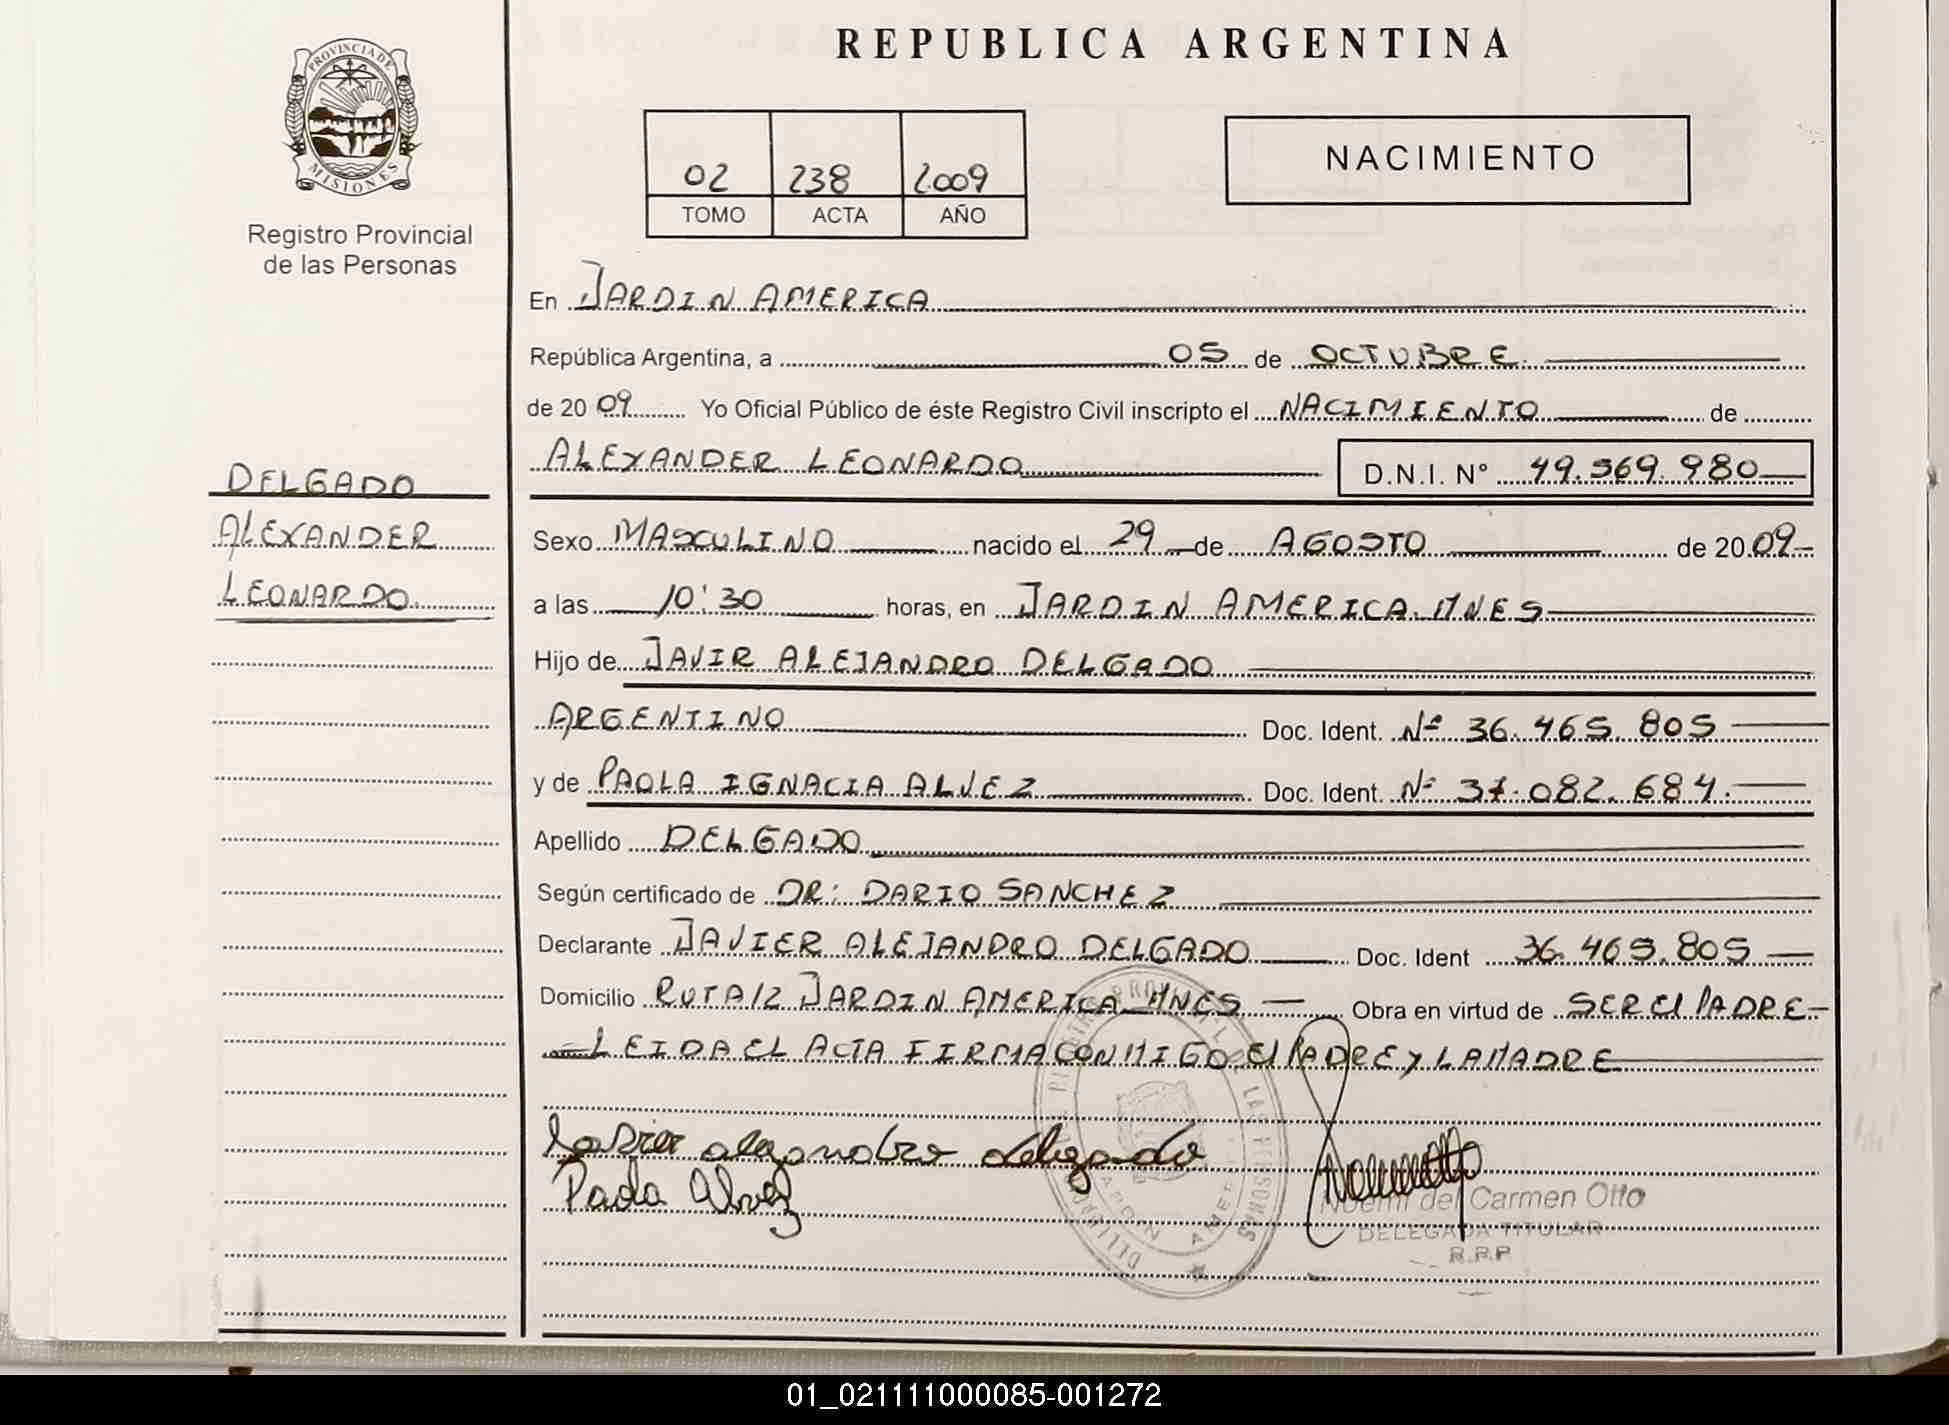 REPUBLICA ARGENTINA
PROVINCIA DE
MISIONES
Registro Provincial
de las Personas
02 238 2009
TOMO ACTA AÑO
NACIMIENTO
En JARDIN AMERICA
República Argentina, a 05 de OCTUBRE
de 2009 Yo Oficial Público de éste Registro Civil inscripto el NACIMIENTO de
ALEXANDER LEONARDO D.N.I. N° 49.569.980
DELGADO
ALEXANDER
LEONARDO
Sexo MASCULINO nacido el 29 de AGOSTO de 2009
a las 10:30 horas, en JARDIN AMERICA MNES
Hijo de JAVIR ALEJANDRO DELGADO
ARGENTINO Doc. Ident. Nº 36.465.805
y de PAOLA IGNACIA ALVEZ Doc. Ident. Nº 37.082.684.
Apellido DELGADO
Según certificado de DR: DARIO SANCHEZ
Declarante JAVIER ALEJANDRO DELGADO Doc. Ident 36.465.805
Domicilio RUTA 12 JARDIN AMERICA MNES Obra en virtud de SER El PADRE
LEIDA EL ACTA FIRMA CONMIGO El PADRE y LA MADRE
Javier alejandro delgado
Paola Alvez
Noemi del Carmen Otto
DELEGADA TITULAR
R.P.P
LAS PERSONAS
JARDIN AMERICA
01_021111000085-001272